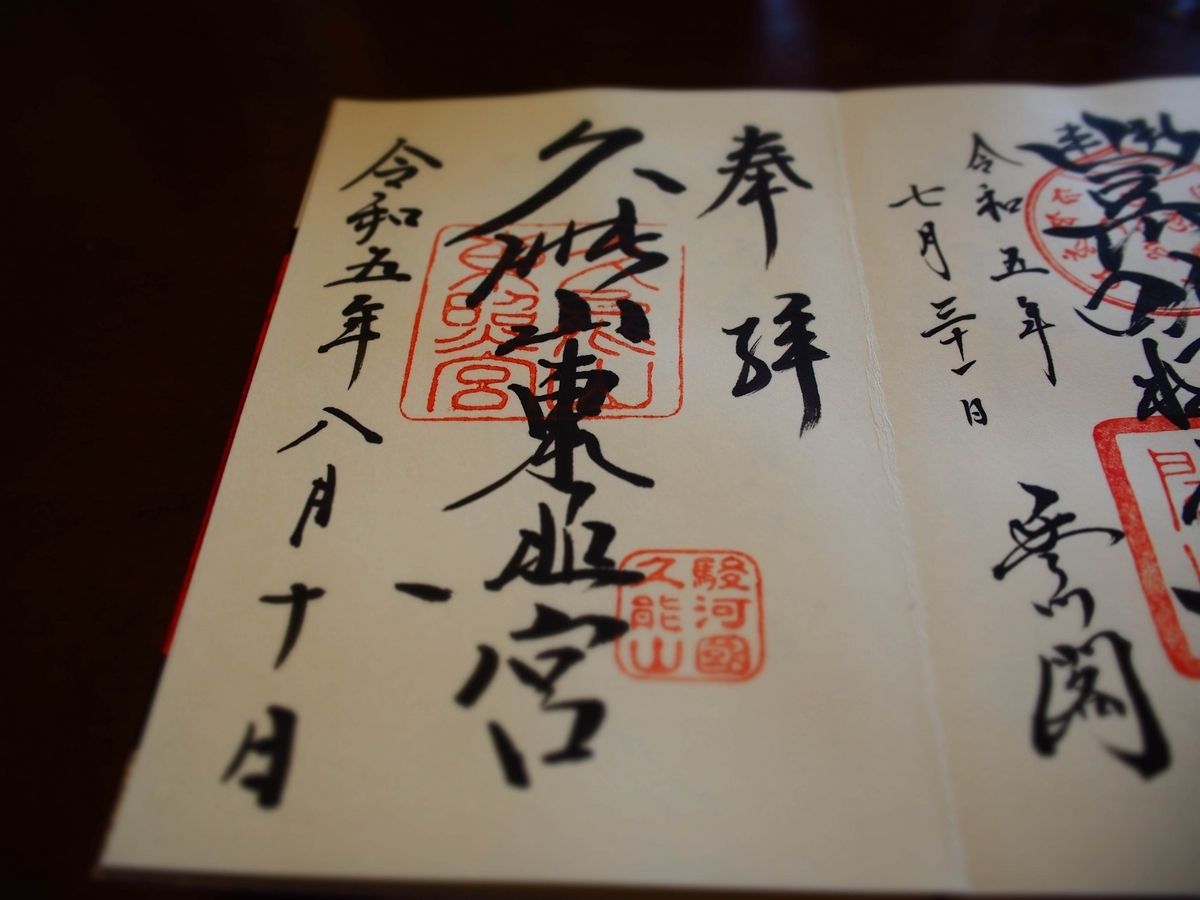 令和五年
七月三十一日
閣
奉拝
久能山東照宮
久能山
東照宮
駿河國
久能山
令和五年八月十日